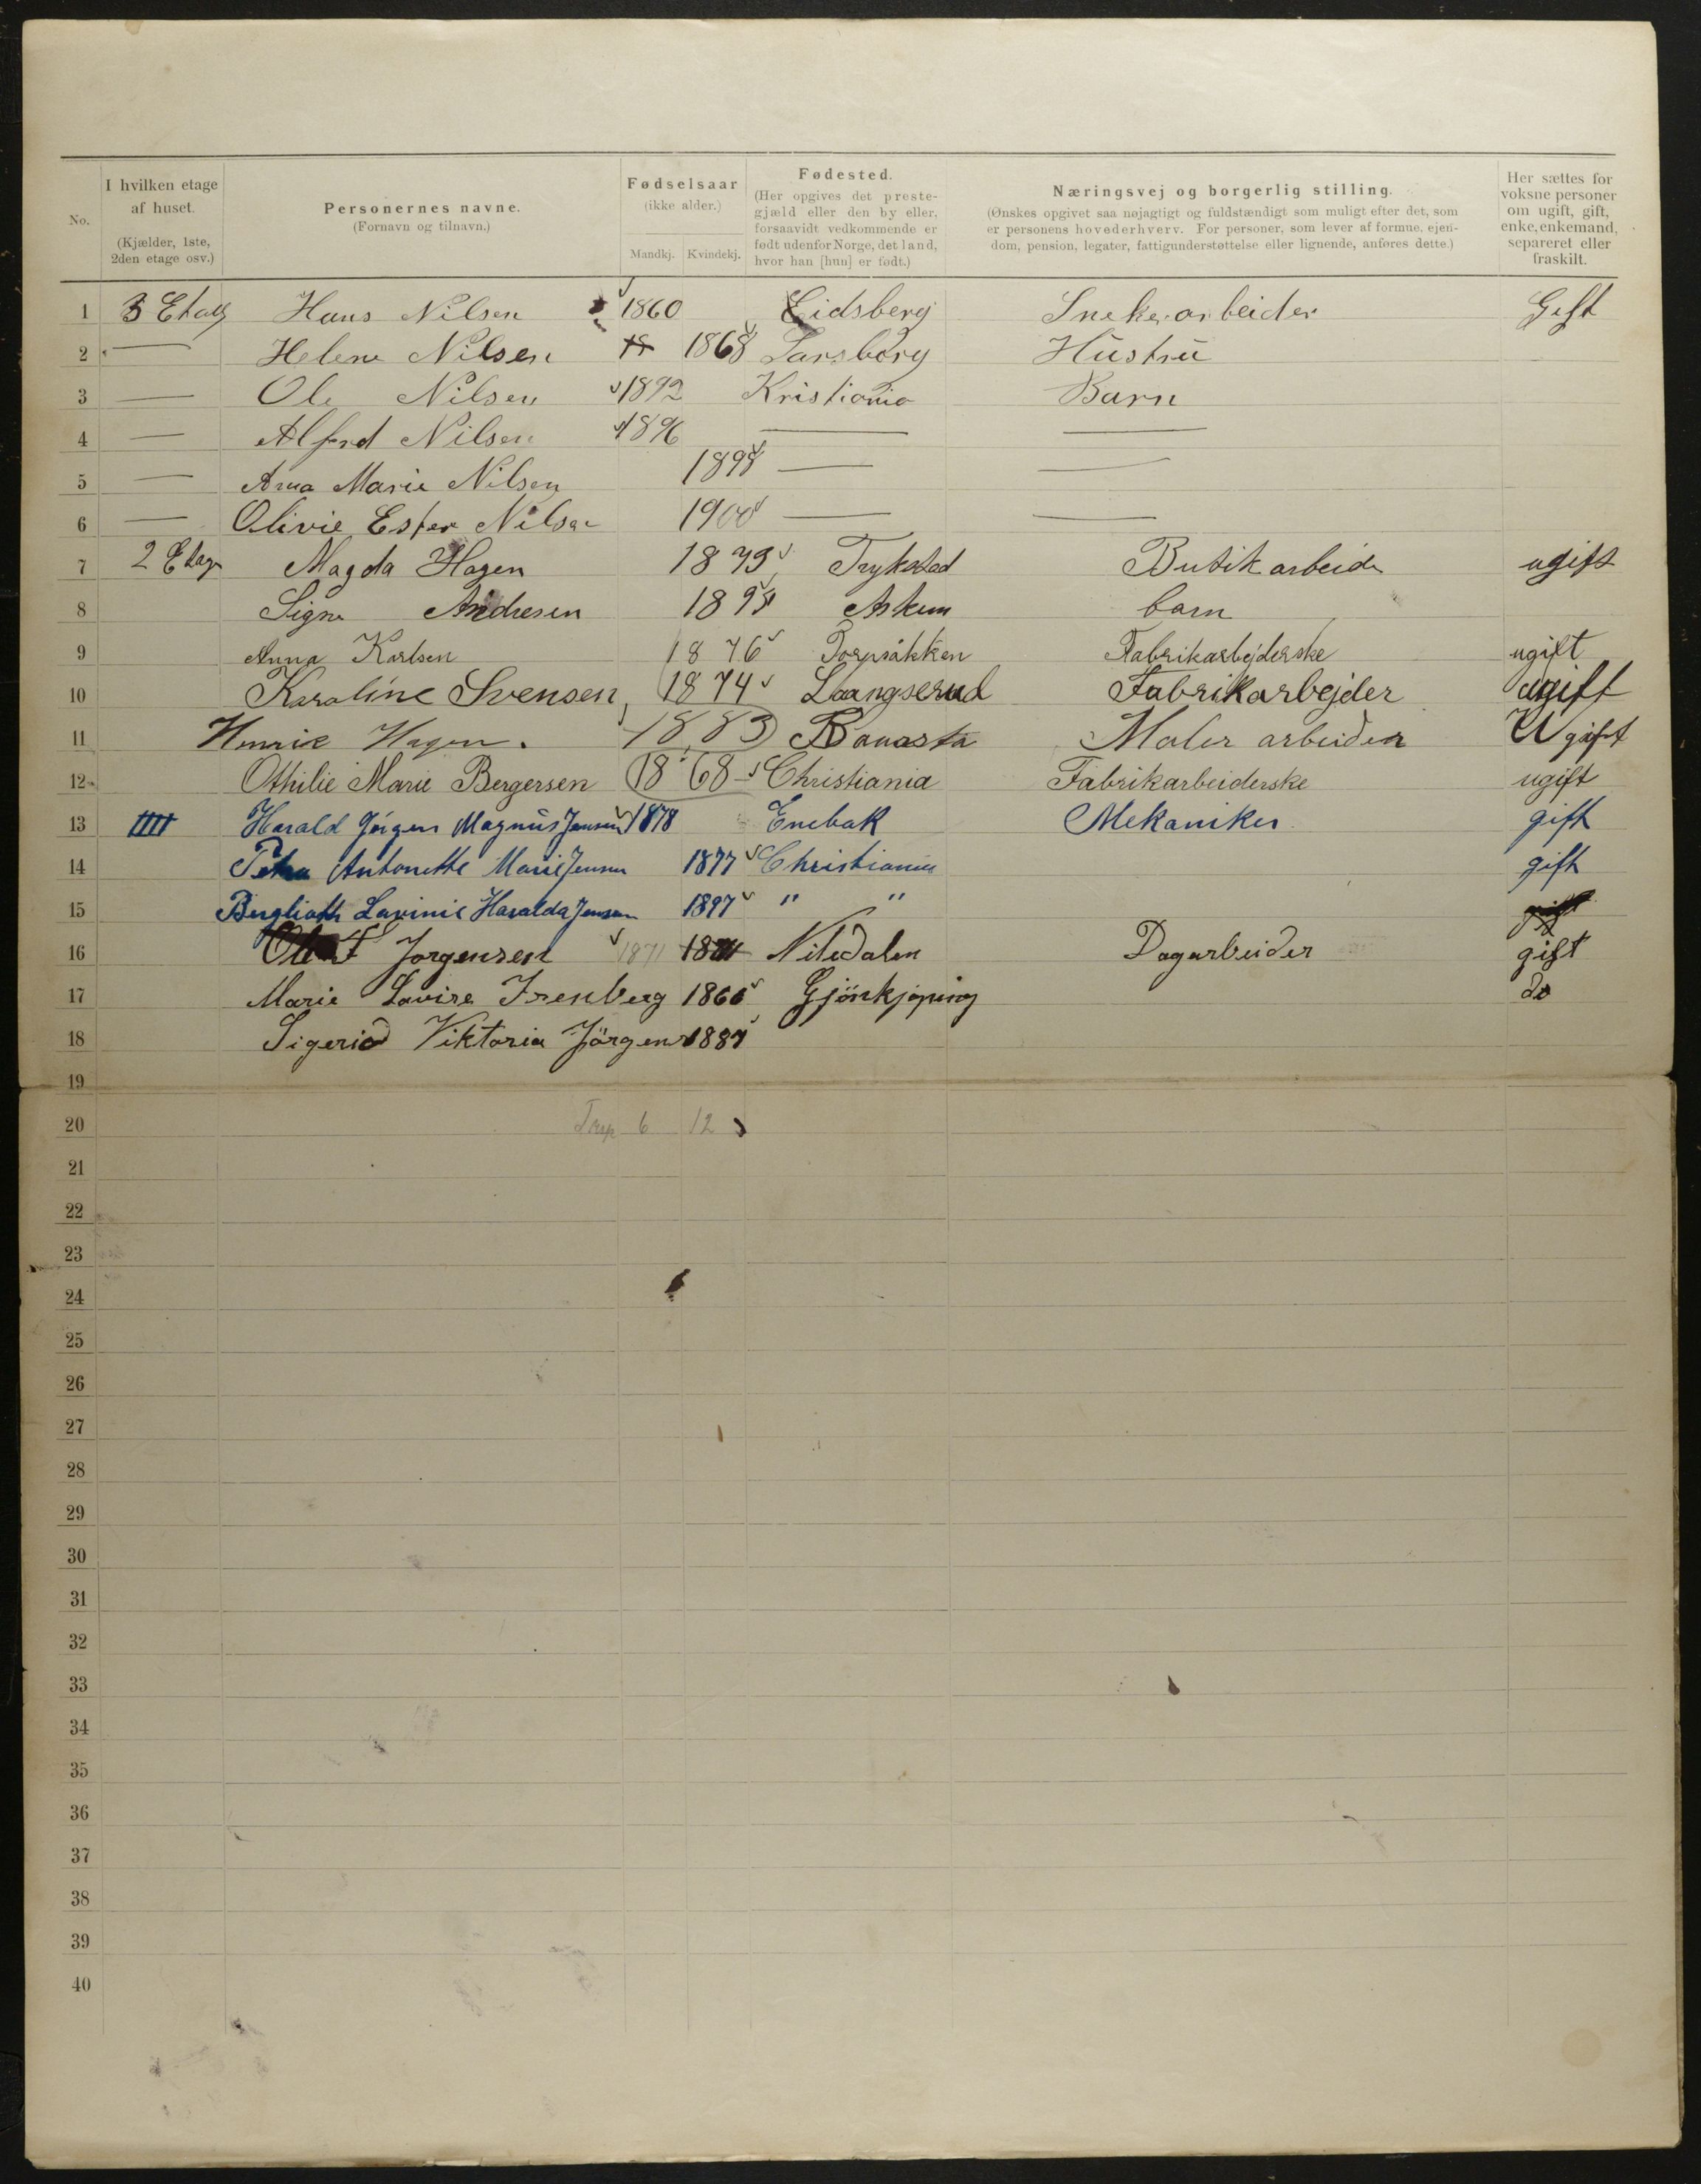 No.
I hvilken etage af huset.
(Kjælder, 1ste, 2den etage osv.)
Personernes navne.
(Fornavn og tilnavn.)
Fødselsaar
(ikke alder.)
Mandkj. Kvindekj.
Fødested.
(Her opgives det prestegjæld eller den by eller, forsaavidt vedkommende er født udenfor Norge, det land, hvor han [hun] er født.)
Næringsvej og borgerlig stilling.
(Ønskes opgivet saa nøjagtigt og fuldstændigt som muligt efter det, som er personens hovederhverv. For personer, som lever af formue, ejendom, pension, legater, fattigunderstøttelse eller lignende, anføres dette.)
Her sættes for voksne personer om ugift, gift, enke, enkemand, separeret eller fraskilt.
1 3 Etag Hans Nilsen 1860 Eidsberg Snekerarbeider Gift
2 — Helene Nilsen 1868 Sarsborg Hüstrü
3 — Ole Nilsen 1892 Kristiania Barn
4 — Alfred Nilsen 1896 — —
5 — Anna Marie Nilsen 1898 — —
6 — Olivie Ester Nilsen 1900 — —
7 2 Etage Magda Hagen 1879 Trykstad Butik arbeide ugift
8 Signe Andresen 1898 Askim barn
9 Anna Karlsen 1876 Fabrikarbejderske ugift
10 Karoline Svensen 1874 Laangserud Fabrikarbejder ugift
11 Henrik Hagen. 1883 Maler arbeider Ugift
12 Othilie Marie Bergersen 1868 Christiania Fabrikarbeiderske ugift
13 Harald Jørgen Magnüs Jensen 1878 Enebak Mekaniker gift
14 Petra Antonette Marie Jensen 1877 Christiania gift
15 Berglioth Lavinie Haralda Jensen 1897 " "
16 Jorgensen 1871 1871 Nitedalen Dagarbeider gift
17 Marie Lovise Irenberg 1866 Gjönkjöping do
18 Sigeriod Viktoria Jörgen 1887
19
20 6 12
21
22
23
24
25
26
27
28
29
30
31
32
33
34
35
36
37
38
39
40